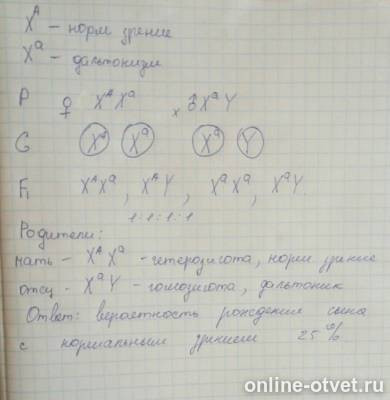 X^A – норм зрение
X^a – дальтонизм
P ♀ X^A X^a x ♂ X^a Y
G X^A X^a X^a Y
F₁ X^A X^a, X^A Y, X^a X^a, X^a Y.
1:1:1:1
Родители:
мать – X^A X^a – гетерозигота, норм зрение
отец – X^a Y – гомозигота, дальтоник
Ответ: вероятность рождение сына
с нормальным зрением 25 %
online-otvet.ru